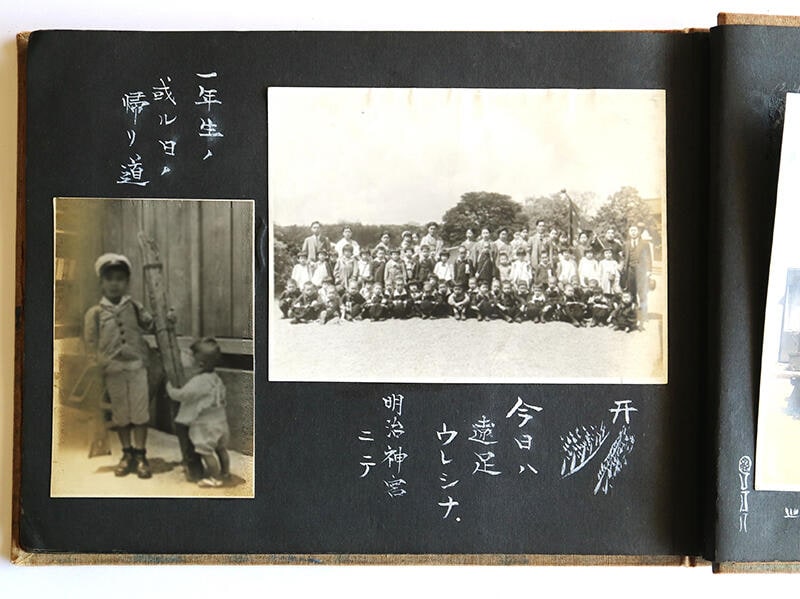 一年生ノ
或ル日ノ
帰リ道
今日ハ
遠足
ウレシナ.
明治神宮
ニテ